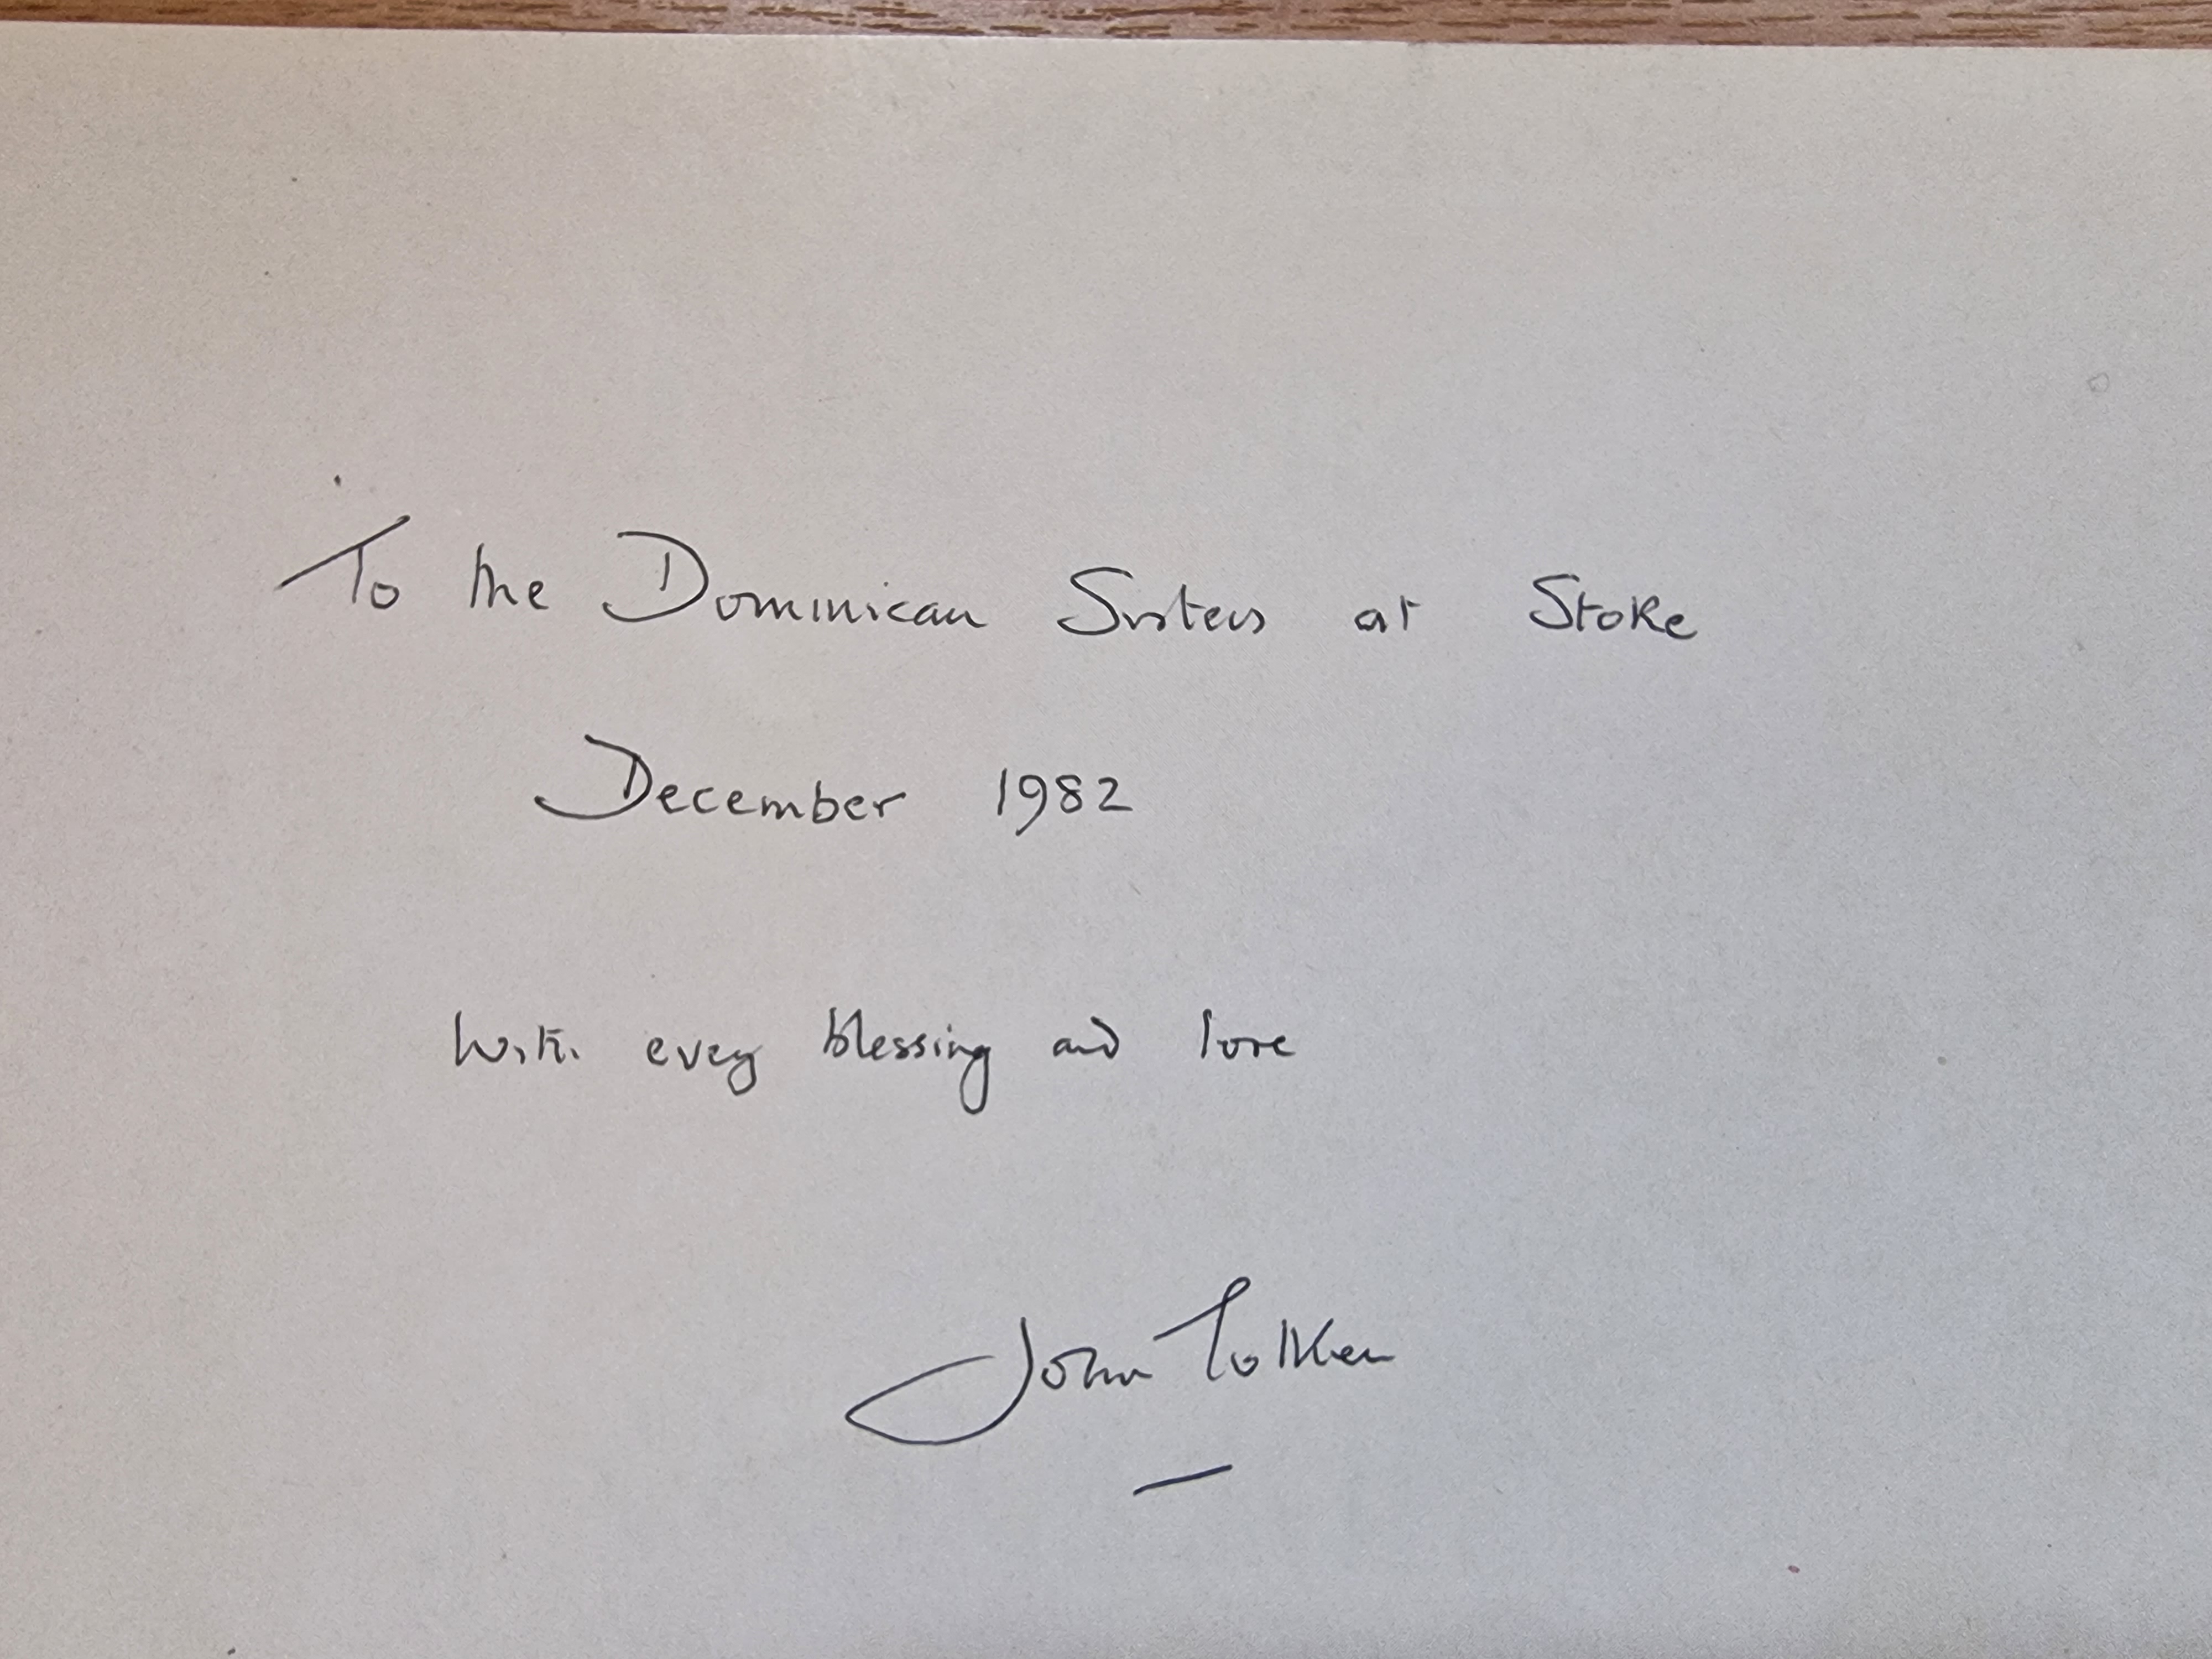 To the Dominican Sisters at Stoke
December 1982
With every blessing and love
John Tolkien